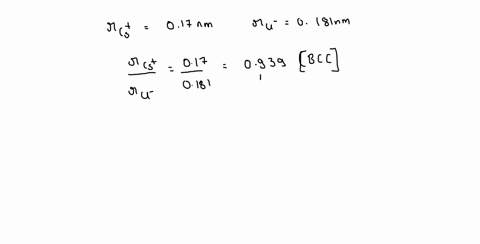 r Cs⁺ = 0.17 nm r Cl⁻ = 0.181nm
r Cs⁺ / r Cl⁻ = 0.17 / 0.181 = 0.939 [BCC]